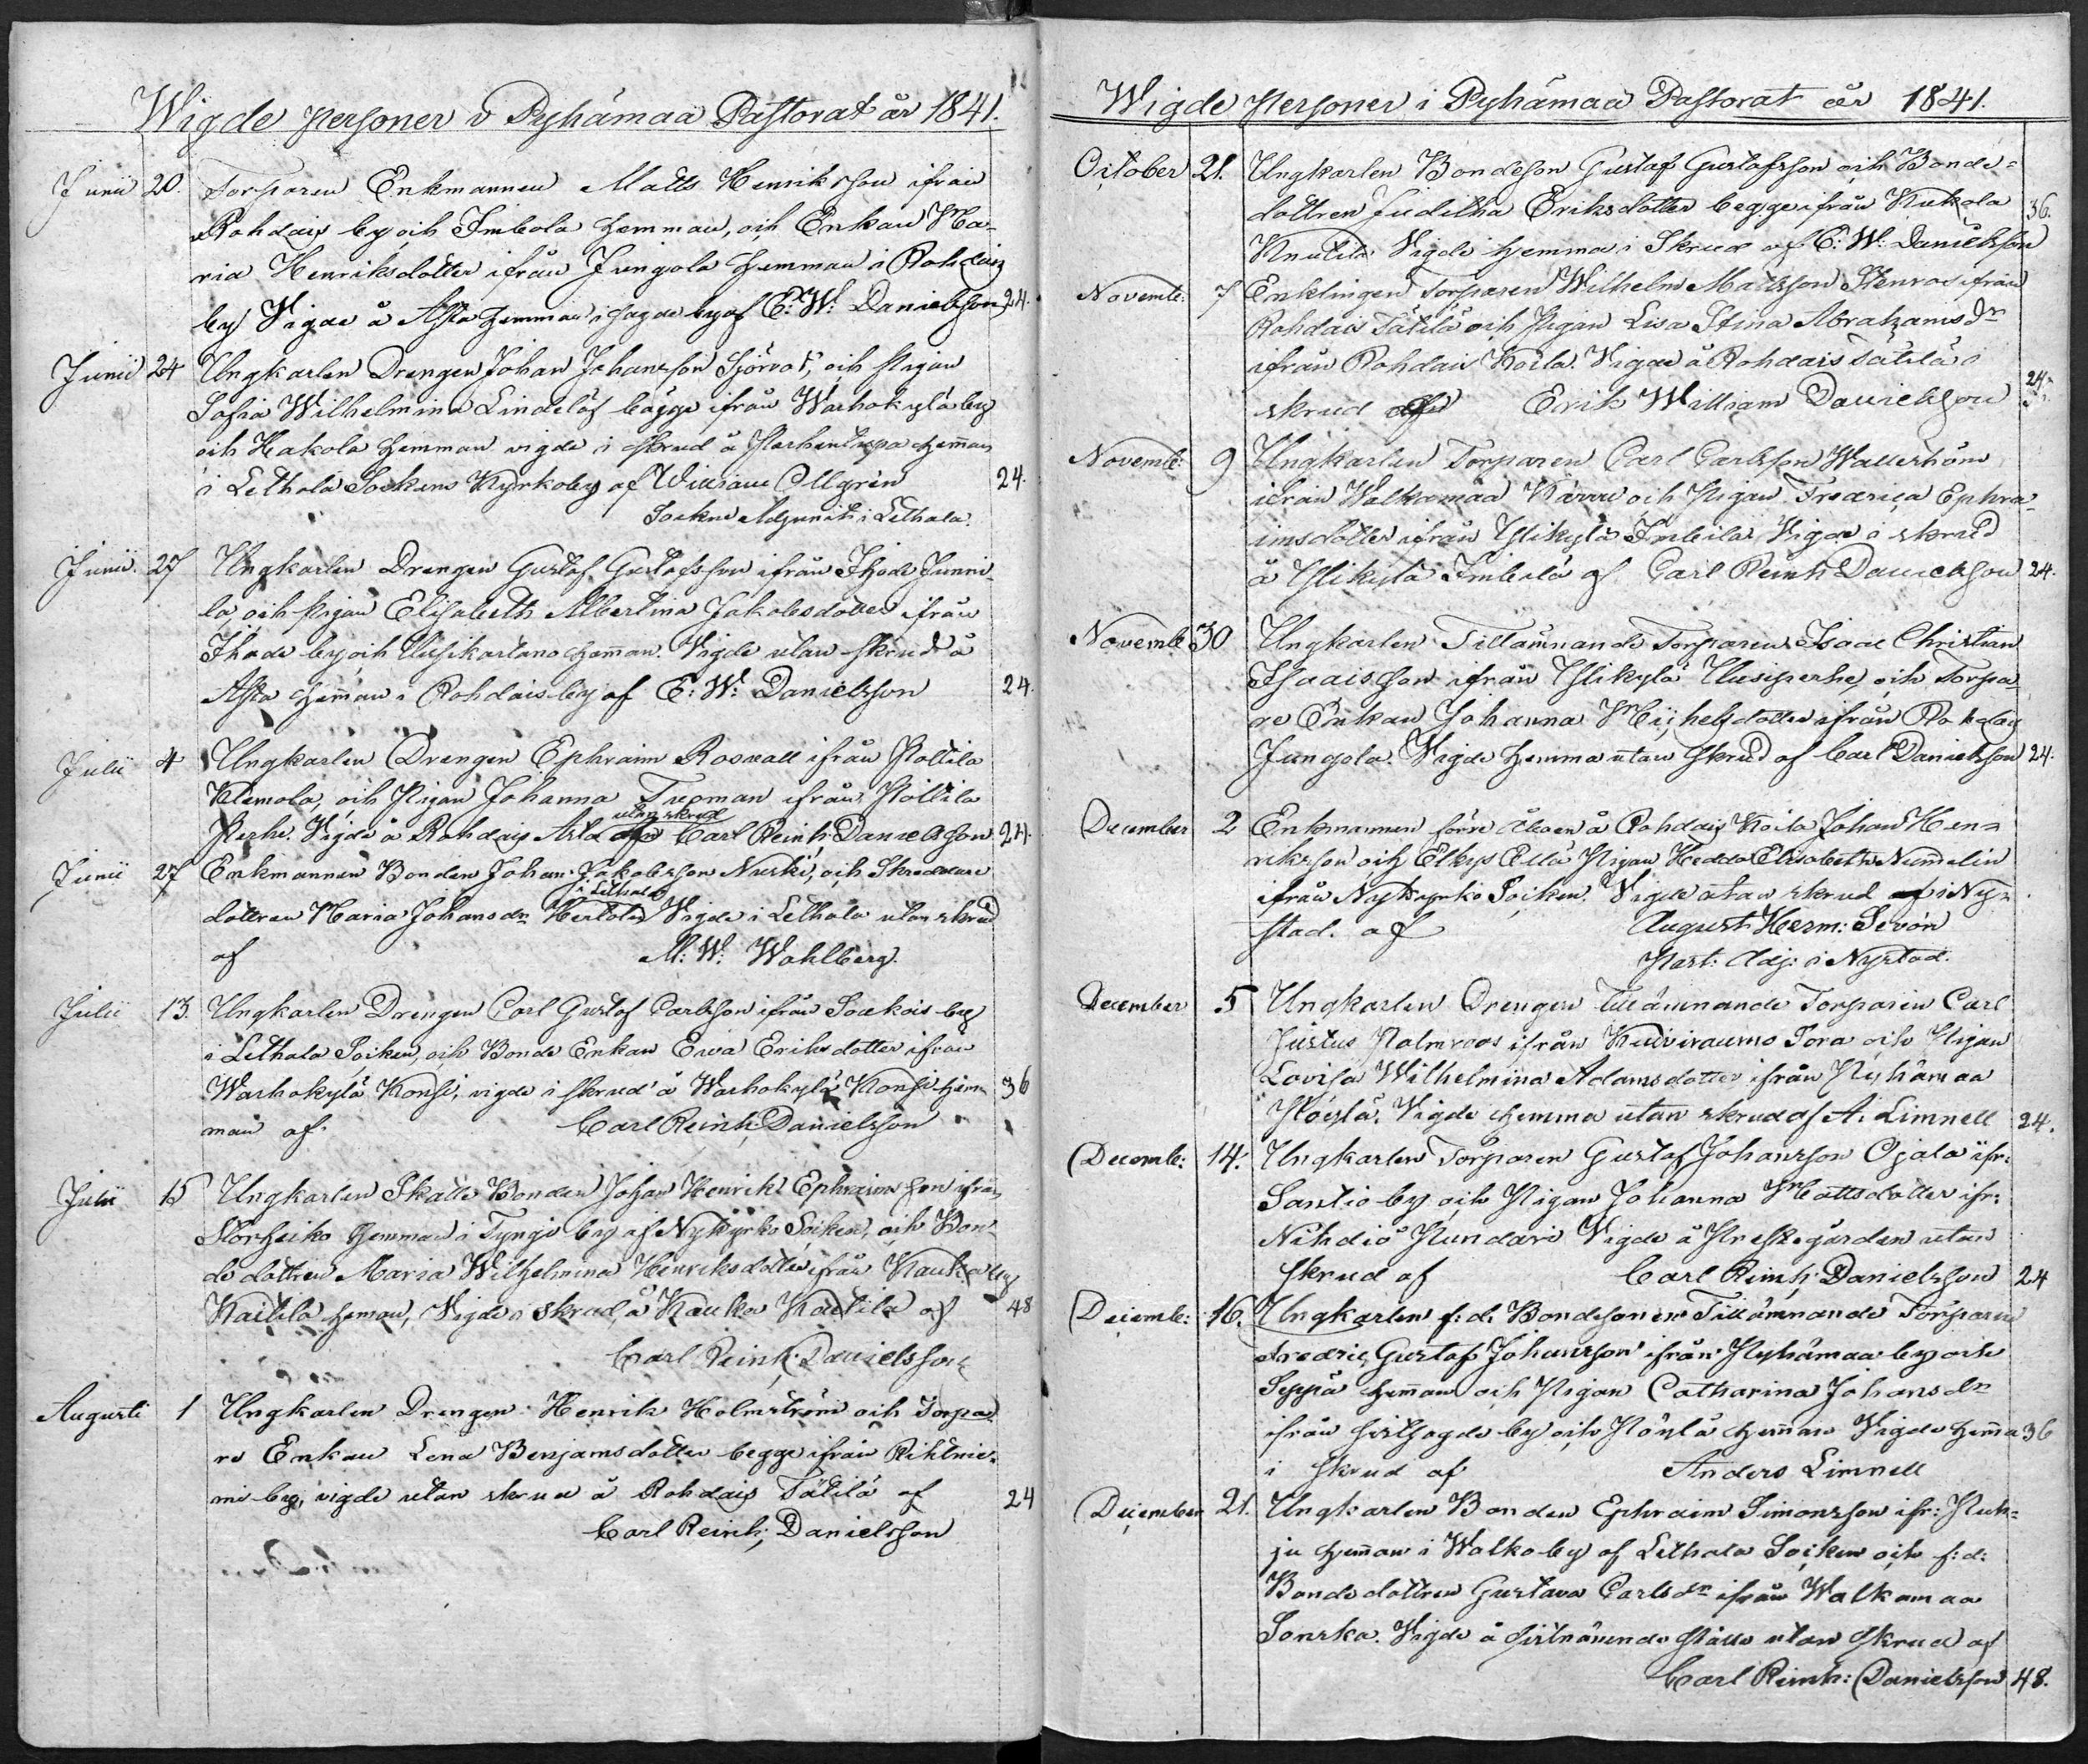 Wigde Personer i Pyhämaa Pastorat år 1841.
Junii 20. Torparen Enkmannen Matts Henriksson ifrån
Rohdais by och Imbola hemman, och Enkan Ma-
ria Henriksdotter ifrån Jungola hemman i Rohdais
by Vigde å Asta hemman i sagde by af E: W: Danielsson 24.
Junii 24 Ungkarlen Drengen Johan Johansson Sjöroos, och Pigan
Sofia Wilhelmina Lindelöf bägge ifrån Warhokylä by
och Hakola hemman vigde i skrud å Perhentupa hemman
i Lethala Sockens Kyrkoby af William Allgrén 24.
Sockne Adjunct i Lethala.
Junii 27 Ungkarlen Drengen Gustaf Gustafsson ifrån Ihode Junni-
la, och Pigan Elisabeth Albertina Jakobsdotter ifrån
Ihode by och Uusikartano hemman. Vigde utan skrud å
Asta hemman i Rohdais by af E: W: Danielsson 24.
Julii 4 Ungkarlen Drengen Ephraim Roswall ifrån Pottila
Klemola, och Pigan Johanna Tupman ifrån Pottila
utan skrud
Perhe. Vigde å Rohdais Asta af Carl Reinh: Danielsson 24.
Junii 27 Enkmannen Bonden Johan Jakobsson Nurki, och Skreddare
i Lethala
dottren Maria Johansdr Vigde i Lethala utan skrud
af M: W: Wahlberg.
Julii 13. Ungkarlen Drengen Carl Gustaf Carlsson ifrån Soukois by
i Lethala Socken, och Bonde Enkan Ewa Eriksdotter ifrån
Warhokylä Konsi, vigde i skrud å Warhokylä Konsi hem- 36
man af Carl Reinh: Danielsson
Julii 15 Ungkarlen Skatte Bonden Johan Henrik Ephraimsson ifrån
Storheiko hemman i Tynge by af Nykyrko Socken, och Bon-
de dottren Maria Wilhelmina Henriksdotter ifrån Kauka by
Kaitila heman, Vigde i skrud å Kauka Kaitila af 48
Carl Reinh: Danielsson
Augusti 1 Ungkarlen Drengen Henrik Holmström och Torpa-
re Enkan Lena Benjamsdotter begge ifrån Rihtnie-
mi by, vigde utan skrud å Rohdais Tätilä af 24
Carl Reinh: Danielsson
Wigde Personer i Pyhämaa Pastorat år 1841.
October 21. Ungkarlen Bondeson Gustaf Gustafsson och Bonde-
dottren Juditha Eriksdotter begge ifrån Kukola 36.
Knutila Vigde hemma i Skrud af E: W: Danielsson
Novemb: 7 Enklingen Torparen Wilhelm Mattsson Stenroos ifrån
Rohdais Tätilä och Pigan Lisa Stina Abrahamsdr
ifrån Rohdais Koila. Vigde å Rohdais Tätilä i
skrud af Erik William Danielsson 24.
Novemb: 9 Ungkarlen Torparen Carl Carlsson Wallerström
ifrån Walkamaa Karru och Pigan Fredrica Ephra-
imsdotter ifrån Ylikylä Imbilä Vigde i skrud
å Ylikylä Imbilä af Carl Reinh Danielsson 24.
Novemb 30 Ungkarlen Tillämnande Torparen Isaac Christian
Isaacsson ifrån Ylikylä Uusiperhe, och Torpa-
re Enkan Johanna Michelsdotter ifrån Rohdais
Jungola. Vigde hemma utan skrud af Carl Danielsson 24.
December 2 Enkmannen förre Åboen å Rohdais Koila Johan Hen-
riksson och Elkys Ellä Pigan Hedda Elisabeth Nummelin
ifrån Nykyrko Socken. Vigde utan skrud i Ny-
stad. af August Herm: Sevón
Past: Adj: i Nystad.
December 5 Ungkarlen Drengen Tillämnande Torparen Carl
Justus Palmroos ifrån Kuiviraumo Tora och Pigan
Lovisa Wilhelmina Adamsdotter ifrån Pyhämaa
Pöylä. Vigde hemma utan skrud af A. Limnell 24.
Decemb: 14. Ungkarlen Torparen Gustaf Johansson Ojala ifr:
Santio by och Pigan Johanna Mattsdotter ifr:
Nihdiö Pundari Vigde å Prestgården utan
skrud af Carl Reinh: Danielsson 24
Decemb: 16. Ungkarlen f: d: Bondesonen Tillämnande Torparen
Fredric Gustaf Johansson ifrån Pyhämaa by och
Seppä hemman och Pigan Catharina Johansdr
ifrån sistsagde by och Pöylä hemman Vigde hemma 36
i skrud af Anders Limnell
December 21. Ungkarlen Bonden Ephraim Simonsson ifr: Puh-
ju hemman i Walko by af Lethala Socken och f: d:
Bondedottren Gustava Carlsdr ifrån Walkamaa
Sonska. Vigde å sistnämnde ställe utan skrud af
Carl Reinh: Danielsson 48.